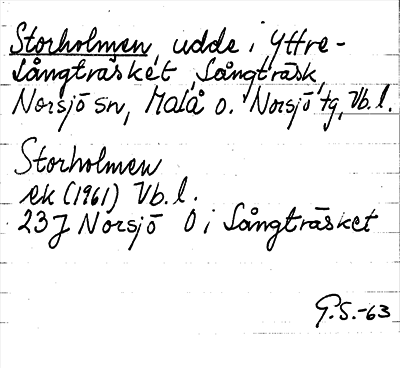 Storholmen, udde i Yttre-
Långträsket, Långträsk,
Norsjö sn, Malå o. Norsjö tg, Vb. l.
Storholmen
ek (1961) Vb. l.
23J Norsjö O i Långträsket
G.S.-63